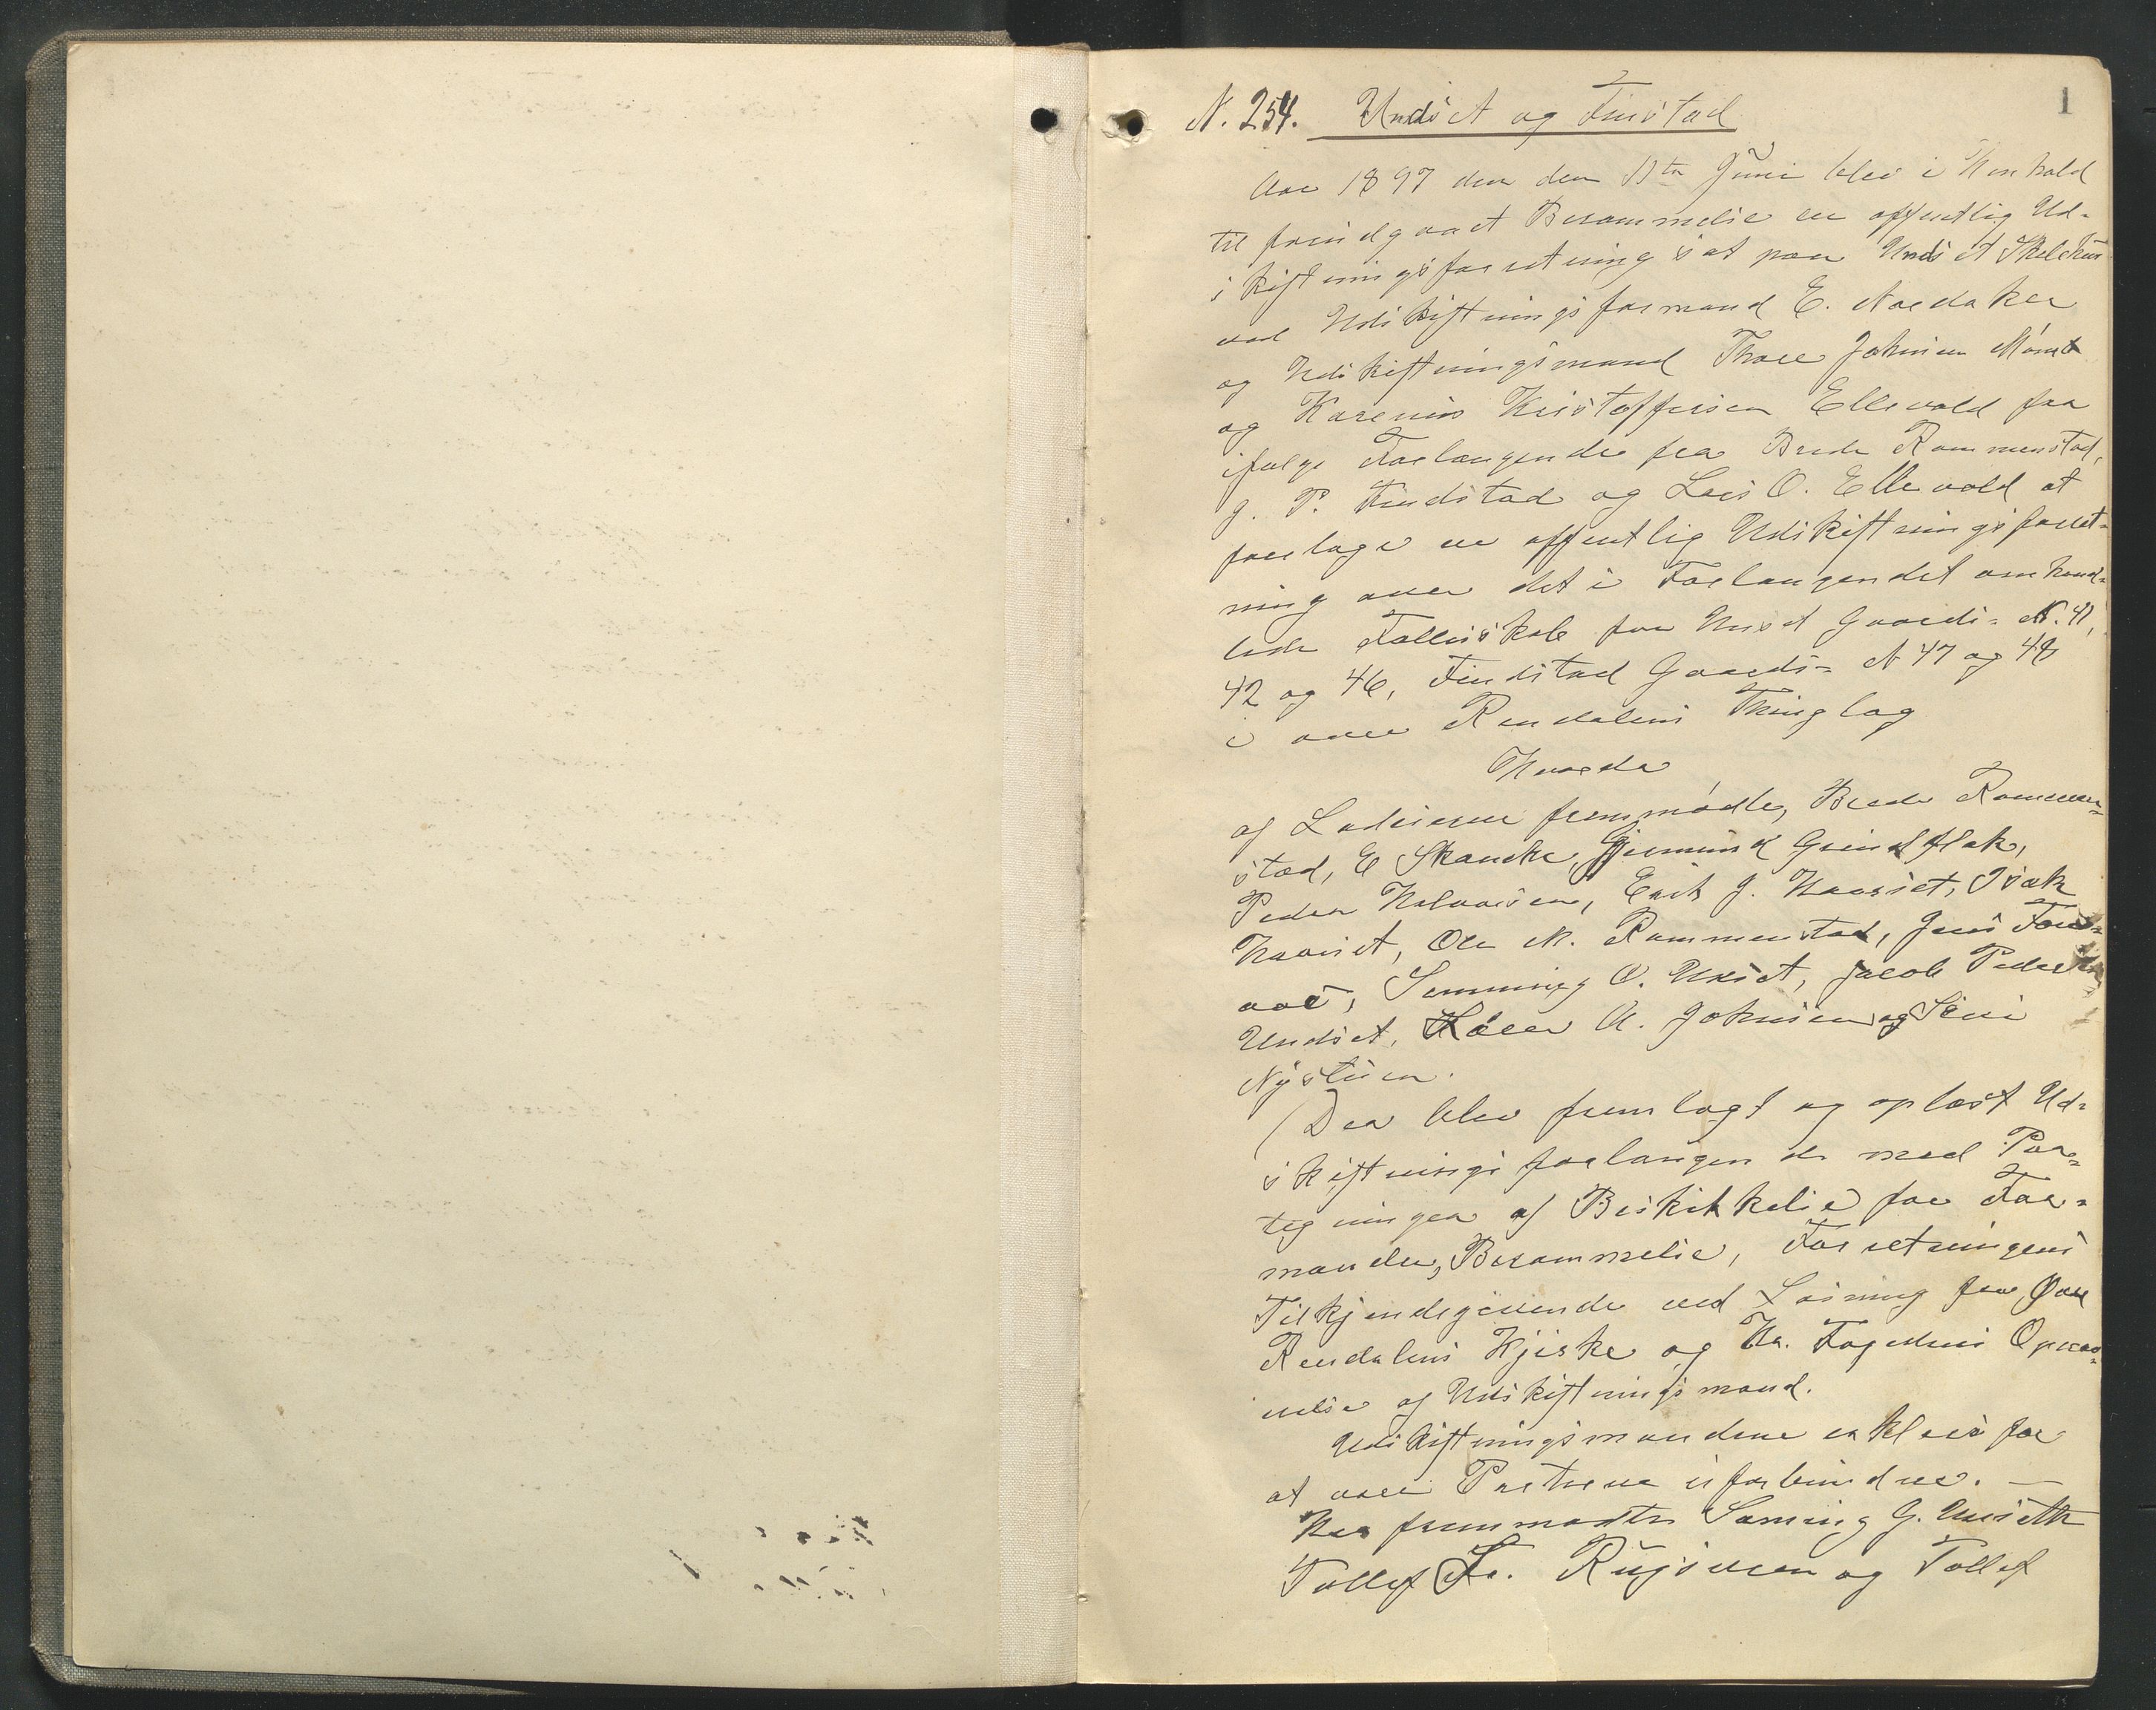 1
N. 254. Undset og Finstad
Aar 1897 den den 11te Juni blev i Henhold
til forudgaaet Berammelse en offentlig Ud-
skiftningsforretning sat paa Undset
ved Udskiftningsformand E. Nordaker
og Udskiftningsmænd Thore Johnsen
og Karenius Kristoffersen Ellevold for
ifølge Forlangende fra Brede Rommenstad,
J. P. Findstad og Lars O. Ellevold at
foretage en offentlig Udskiftningsforret-
ning over det i Forlangendet omhand-
lede Fællesskab for Unset Gaards- N. 41,
42 og 46, Findstad Gaards- N 47 og 48
i øvre Rendalens Thinglag
Hvorda
af Lodeierne fremmødte, Brede Rommen-
stad, E Skancke, Gjermund Grindflek,
Peder Halvorsen, Erik J. Haarset, Isak
Haarset, Ole M. Rommenstad, Jens
Semming O. Unset, Jacob Pedersen
Undset, Haaer A. Johnsen og Simi
Nystuen.
Der blev fremlagt og oplæst Ud-
skiftningsforlangende med Paa-
tegninger af Beskikkelse for For-
manden, Berammelse, Forretningens
Tilkjendegivende ved Læsning fra Øvre
Rendalens Kjirke og Hr. Fogdens Opnæv-
nelse af Udskiftningsmænd.
Udskiftningsmændene erklærer for
at være Parterne uforbindre. —
Her fremmødte Sæming G. Unseth
Tollef Fr. Rugsveen og Tollef